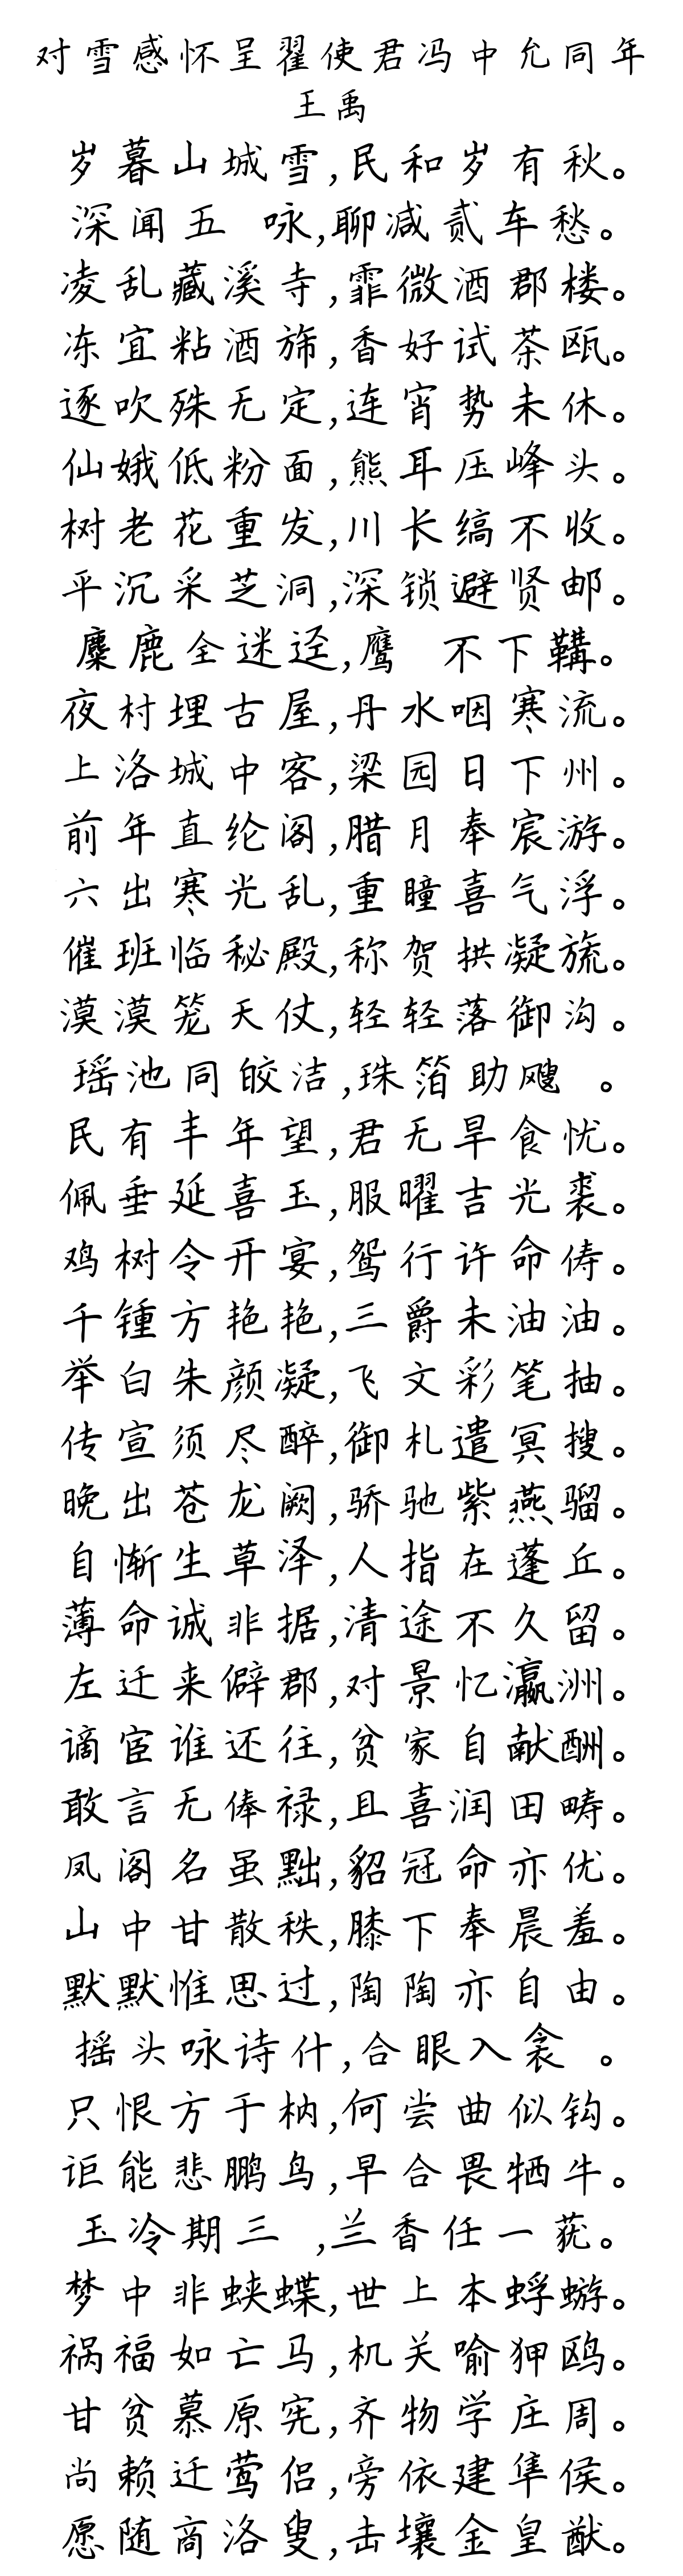 对雪感怀呈翟使君冯中允同年
王禹
岁暮山城雪,民和岁有秋。
深闻五 咏,聊减贰车愁。
凌乱藏溪寺,霏微洒郡楼。
冻宜粘酒旆,香好试茶瓯。
逐吹殊无定,连宵势未休。
仙娥低粉面,熊耳压峰头。
树老花重发,川长缟不收。
平沉采芝洞,深锁避贤邮。
麋鹿全迷迳,鹰 不下鞲。
夜村埋古屋,丹水咽寒流。
上洛城中客,梁园日下州。
前年直纶阁,腊月奉宸游。
六出寒光乱,重瞳喜气浮。
催班临秘殿,称贺拱凝旒。
漠漠笼天仗,轻轻落御沟。
瑶池同皎洁,珠箔助飕 。
民有丰年望,君无旱食忧。
佩垂延喜玉,服曜吉光裘。
鸡树令开宴,鸳行许命俦。
千锺方艳艳,三爵未油油。
举白朱颜凝,飞文彩笔抽。
传宣须尽醉,御札遣冥搜。
晚出苍龙阙,骄驰紫燕骝。
自惭生草泽,人指在蓬丘。
薄命诚非据,清途不久留。
左迁来僻郡,对景忆瀛洲。
谪宦谁还往,贫家自献酬。
敢言无俸禄,且喜润田畴。
凤阁名虽黜,貂冠命亦优。
山中甘散秩,膝下奉晨羞。
默默惟思过,陶陶亦自由。
摇头咏诗什,合眼入衾 。
只恨方于枘,何尝曲似钩。
讵能悲鹏鸟,早合畏牺牛。
玉冷期三 ,兰香任一莸。
梦中非蛱蝶,世上本蜉蝣。
祸福如亡马,机关喻狎鸥。
甘贫慕原宪,齐物学庄周。
尚赖迁莺侣,旁依建隼侯。
愿随商洛叟,击壤金皇猷。